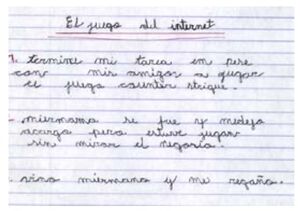 El juego del internet
1. termine mi tarea em pese
con mir amigos a jugar
el juego counter strique.
- miermama se fue y medejo
acargo pero estuve jugar
sin mirar el negorio.
. vino miermano y me regaño.